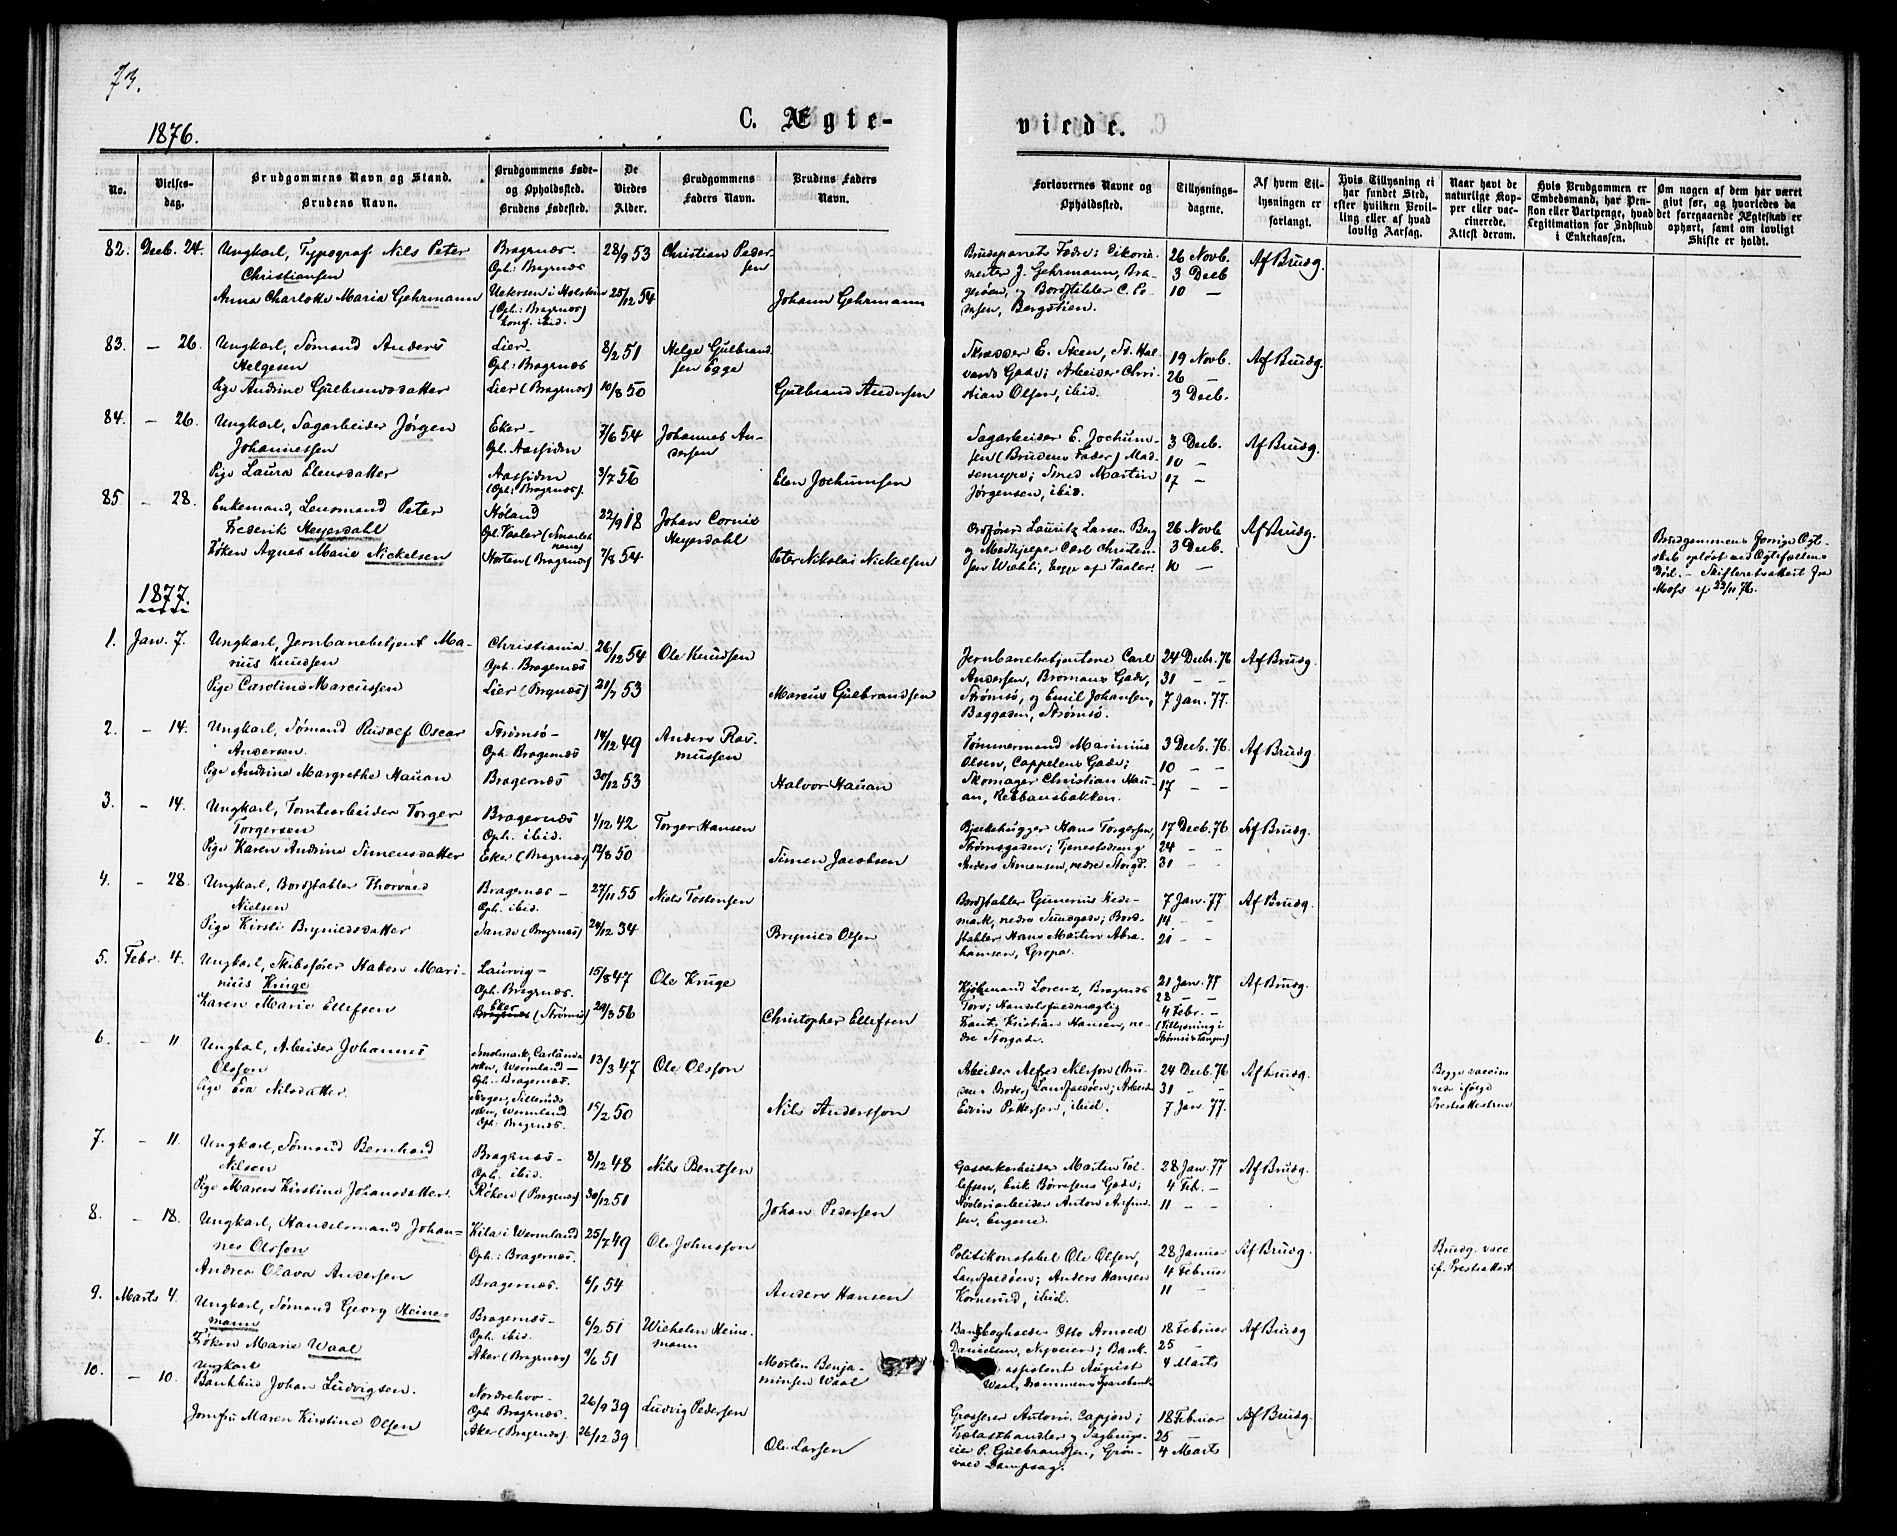 73.
1876.
C. Ægte-
viede.
No.
Vielses-dag.
Brudgommens Navn og Stand. Brudens Navn.
Brudgommens Føde- og Opholdssted. Brudens Fødested.
De Viedes Alder.
Brudgommens Faders Navn.
Brudens Faders Navn.
Forlovernes Navne og Opholdssted.
Tillysnings-dagene.
Af hvem Tillysningen er forlangt.
Hvis Tillysning ei har fundet Sted, efter hvilken Bevilling eller af hvad lovlig Aarsag.
Naar havt de naturlige Kopper eller vaccinerede. Attest derom.
Hvis Brudgommen er Embedsmand, har Pension eller Vartpenge, hvad Legitimation for Indskud i Enkekassen.
Om nogen af dem har været givt før, og hvorledes da det foregaaende Ægteskab er ophørt, samt om lovligt Skifte er holdt.
82. Decb. 24. Ungkarl, Typograf Nils Peter Christiansen
Bragernæs. Oph: Bragernæs
28/9 53 Christian Pedersen
Anna Charlotte Maria Gehrmann
Uetersen i Holsten (Oph: Bragernæs) konf. ibid.
25/12 54 Johann Gehrmann
Brudeparrets Fædre:
mester J. Gehrmann, Bragerøen, og Bordstabler C. Pedersen, Bergstien.
26 Novb. 3 Decb 10 — Af Brudg.
83. — 26. Ungkarl, Sømand Anders Helgesen
Lier- Oph: Bragernæs
8/2 51 Helge Gulbrandsen Egge
Pige Andrine Gulbrandsdatter
Lier (Bragernæs) 10/8 50 Gulbrand Andersen
Skrædder E. Steen, St. Halvards Gade; Arbeider Christian Olsen, ibid.
19 Novb. 26 — 3 Decb. Af Brudg.
84. — 26. Ungkarl, Sagarbeider Jørgen Johannessen
Eker- Oph. Aassiden
7/6 54 Johannes Andersen
Pige Laura Elensdatter
Aassiden (Oph: Bragernæs).
3/7 56 Elen Jochumsen
Sagarbeider E. Jochumsen (Brudens Fader) Madsemyre; Smed Martin Jørgensen, ibid.
3 Decb. 10 — 17 — Af Brudg.
85 — 28. Enkemand, Lensmand Peter Frederik Heyerdahl
Høland Oph. Vaaler (Smaalenene)
22/9 18 Johan Cornix Heyerdahl
Frøken Agnes Marie Nickelsen
Horten (Bragernæs) 7/8 54 Peter Nikolai Nickelsen
Ordfører Lauritz Larsen Berg og Medhjelper Carl Christensen Wæhli, begge af Vaaler.
26 Novb 3 Decb. 10 — Af Brudg.
Brudgommens forrige Ægteskab opløst ved Ægtefællens Død. — Skifteretsattest fra Moss af 23/11 76.
1877.
1. Jan. 7. Ungkarl, Jernbanebetjent Marius Knudsen
Christiania- Oph. Bragernæs
26/12 54 Ole Knudsen
Pige Caroline Marcussen
Lier (Bragnæs) 21/7 53 Marcus Gulbrandsen
Jernbanebetjentene Carl Andersen, Bromans Gade, Strømsø, og Emil Johansen, Baggaden, Strømsø.
24 Decb. 76 31 — — 7 Jan. 77. Af Brudg.
2. — 14. Ungkarl, Sømand Rudolf Oscar Andersen.
Strømsø- Oph. Bragernæs
14/12 49 Anders Rasmussen
Pige Andrine Margrethe Hauan
Bragernæs 30/12 53 Halvor Hauan
Tømmermand Marinius Olsen, Cappelens Gade; Skomager Christian Hauan, Rebbansbakken.
3 Decb. 76. 10 — — 17 — — Af Brudg.
3. — 14. Ungkarl, Tomtearbeider Torger Torgersen
Bragernæs Oph. ibid.
1/12 42 Torger Hansen
Pige Karen Andrine Simensdatter
Eker (Bragernæs) 12/8 50 Simen Jacobsen
Bjelkehugger Hans Torgersen, Strømsgaden; Tjenestedreng Anders Simensen, nedre Storgd.
17 Decb. 76 24 — — 31 — — Af Brudg.
4. — 28. Ungkarl, Bordstabler Thorvald Nielsen
Bragernæs — Oph. ibid.
27/11 55 Niels Tostensen
Pige Kirsti Brynildsdatter
Sande (Bragernæs) 24/12 34 Brynild Olsen
Bordstabler Gunerius Hedemark, nedre Sundgade; Bordstabler Hans Martin Abrahamsen, Gropa.
7 Jan. 77 14 — — 21 — — Af Brudg.
5. Febr. 4. Ungkarl, Skibsfører Hakon Marinius Kruge
Laurvig — Oph. Bragernæs.
15/8 47 Ole Kruge
Karen Marie Ellefsen
Eker Bragernæs (Strømsø) 20/3 56 Christopher Ellefsen
Kjøbmand Lorenz, Bragernæs Torv; Handelsfuldmægtig Frantz Kristian Hansen, nedre Storgade.
21 Jan. 77 28 — — 4 Febr. — (Tillysning i Strømsø &amp; Tangen) Af Brudg.
6. — 11 Ungkarl, Arbeider Johannes Olsson
Wermland — Oph. Bragernæs.
13/3 47 Ole Olsson
Pige Eva Nilsdatter.
Wermland Oph. Bragernæs.
15/2 50 Nils Andersson
Arbeider Alfred Nilsson (Brudens Broder), Landfaldøen; Arbeider Edvin Pettersen, ibid.
24 Decb. 76 31 — — 7 Jan. 77. Af Brudg.
Begge vaccinerede ifølge Presteattesterne
7. — 11. Ungkarl, Sømand Bernhard Nilsen
Bragernæs- Oph. ibid.
8/12 48 Nils Bentsen
Pige Maren Kirstine Johansdatter.
Røken (Bragernæs) 30/12 51 Johan Pedersen
Gasverkarbeider Martin Tollefsen, Erik Børresens Gade; Støberiarbeider Anton Arfinnsen, Engene.
28 Jan. 77 4 Feb. — 11 — — Af Brudg.
8. — 18. Ungkarl, Handelsmand Johannes Olsson
Kila i Wermland Oph: Bragernæs.
25/7 49 Ole Johnsson
Andrea Olava Andersen
Bragernæs. 6/1 54 Anders Hansen
Politikonstabel Ole Olsen, Landfaldøen; Anders Hansen Kornerud, ibid.
28 Januar 4 Februar 11 — Af Brudg.
Brudg. vacc. if. Presteattest
9. Marts 4. Ungkarl, Sømand Georg Heinemann
Bragernæs- Oph. ibid.
6/2 51 Wilhelm Heinemann
Frøken Marie Waal
Aker (Bragernæs) 9/6 51 Morten Benjaminsen Waal
Bankbogholder Otto Arnold Danielsen, Nyveien; Bankassistent August Waal, Drammens Sparebank
18 Februar 25 — 4 Marts Af Brudg
10. — 10. Ungkarl Bankbud Johan Ludvigsen.
Norderhov — Oph. Bragernæs.
26/9 39 Ludvig Pedersen
Jomfru Maren Kirstine Olsen
Aker (Bragernæs) 26/12 39 Ole Larsen
Grosserer Antoni Capjon; Trælasthandler og Sagbrugseier P. Gulbrandsen, Grønvold Dampsag.
18 Februar 25 — 4 Marts Af Brudg.